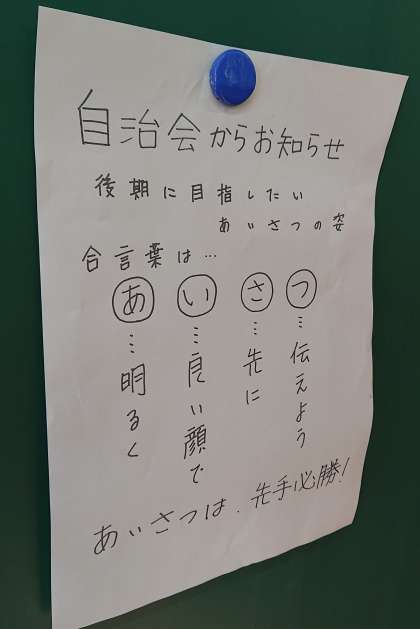 自治会からお知らせ
後期に目指したい
あいさつの姿
合言葉は…
あ…明るく
い…良い顔で
さ…先に
つ…伝えよう
あいさつは、先手必勝!